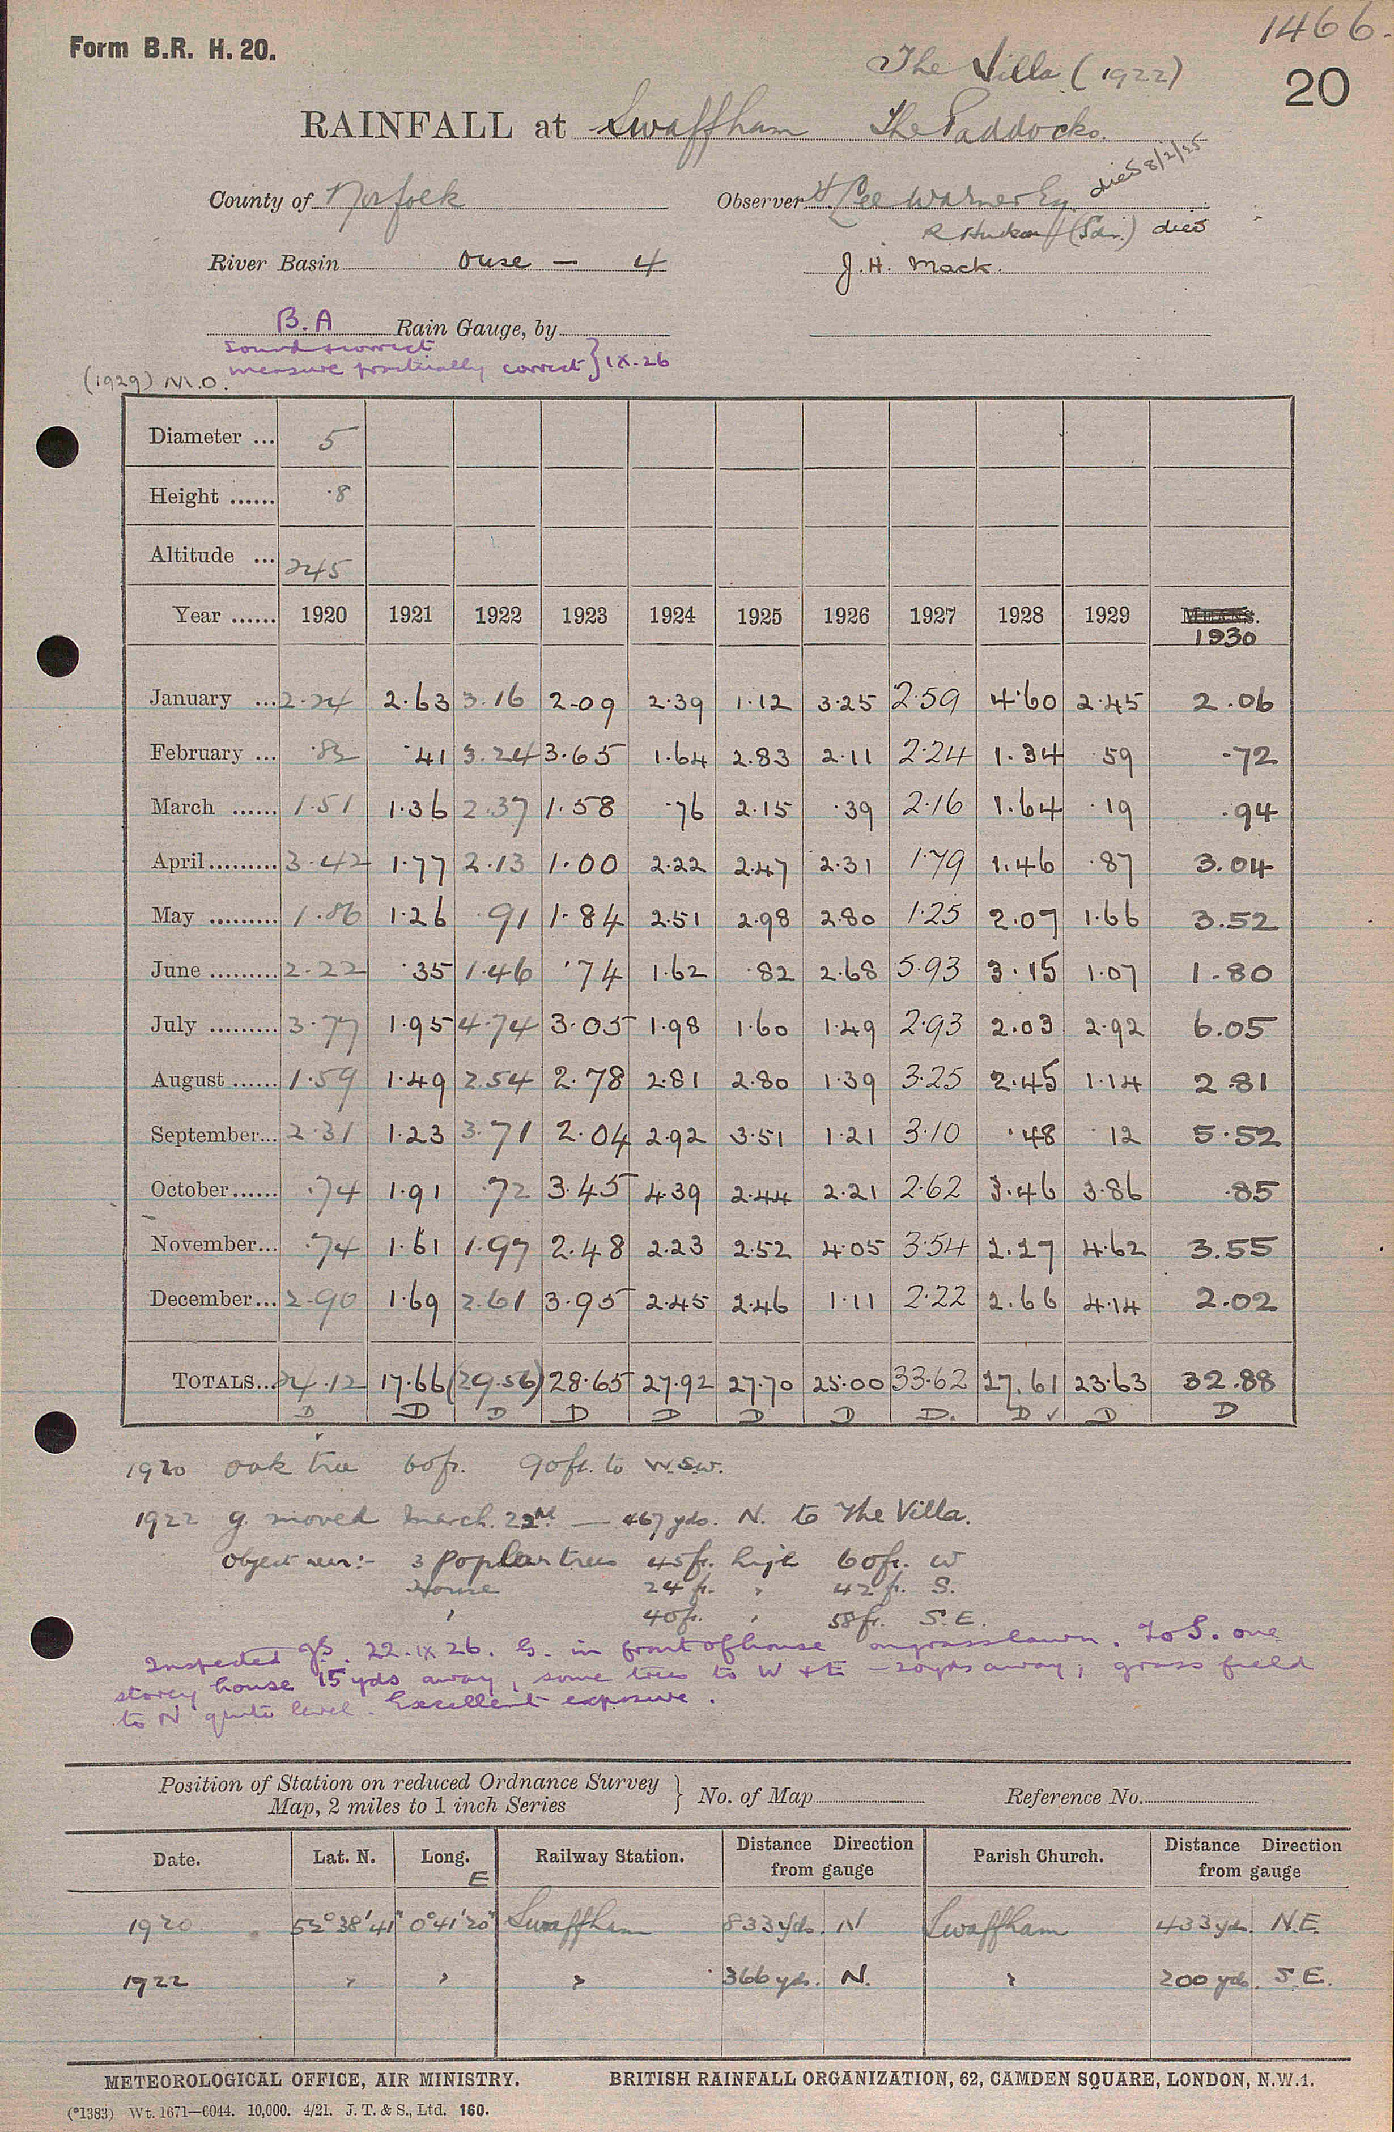 1466.
Form B.R. H. 20.
The Villa (1922)
20
RAINFALL at Swaffham The Paddocks.
County of Norfolk Observer H. Lee Warner Esq. died 8/2/25
R (Gdr.) died
River Basin Ouse — 4 J. H. Mack.
B.A Rain Gauge, by
Sound & correct
measure practically correct } IX.26
(1929) M.O.
Diameter ... 5
Height ...... ·8
Altitude ... 245
Year ...... 1920 1921 1922 1923 1924 1925 1926 1927 1928 1929 1930
January ... 2.24 2.63 3.16 2.09 2.39 1.12 3.25 2.59 4.60 2.45 2.06
February ... ·82 ·41 3.24 3.65 1.64 2.83 2.11 2.24 1.34 59 .72
March ...... 1.51 1.36 2.37 1.58 .76 2.15 .39 2.16 1.64 .19 .94
April......... 3.42 1.77 2.13 1.00 2.22 2.47 2.31 1.79 1.46 .87 3.04
May ......... 1.86 1.26 .91 1.84 2.51 2.98 2.80 1.25 2.07 1.66 3.52
June ......... 2.22 .35 1.46 .74 1.62 .82 2.68 5.93 3.15 1.07 1.80
July ......... 3.77 1.95 4.74 3.05 1.98 1.60 1.49 2.93 2.03 2.92 6.05
August ...... 1.59 1.49 2.54 2.78 2.81 2.80 1.39 3.25 2.45 1.14 2.81
September... 2.31 1.23 3.71 2.04 2.92 3.51 1.21 3.10 .48 .12 5.52
October...... .74 1.91 .72 3.45 4.39 2.44 2.21 2.62 3.46 3.86 .85
November... .74 1.61 1.97 2.48 2.23 2.52 4.05 3.54 2.27 4.62 3.55
December... 2.90 1.69 2.61 3.95 2.45 2.46 1.11 2.22 2.66 4.14 2.02
TOTALS... 24.12 17.66 (29.56) 28.65 27.92 27.70 25.00 33.62 27.61 23.63 32.88
D D D D D D D D. D ✓ D D
1920 oak tree 60ft. 90ft. to W.S.W.
1922 g. moved March. 22nd — 467 yds. N. to The Villa.
Object near:- 3 Poplar trees 45ft. high 60ft. W
House 24ft. " 42ft. S.
" 40ft. " 58ft. S.E.
Inspected 22.IX.26. G. in front of house on grass lawn. To S. one
storey house 15 yds away, some trees to W & E – 20 yds away; grass field
to N quite level. Excellent exposure.
Position of Station on reduced Ordnance Survey
Map, 2 miles to 1 inch Series } No. of Map Reference No.
Date. Lat. N. Long. E Railway Station. Distance Direction from gauge Parish Church. Distance Direction from gauge
1920 52°38'41" 0°41'20" Swaffham 833 yds. N Swaffham 433 yds. N.E.
1922 " " " 366 yds. N. " 200 yds. S.E.
METEOROLOGICAL OFFICE, AIR MINISTRY. BRITISH RAINFALL ORGANIZATION, 62, CAMDEN SQUARE, LONDON, N.W.1.
(*1383) Wt. 1671—6044. 10,000. 4/21. J. T. & S., Ltd. 160.